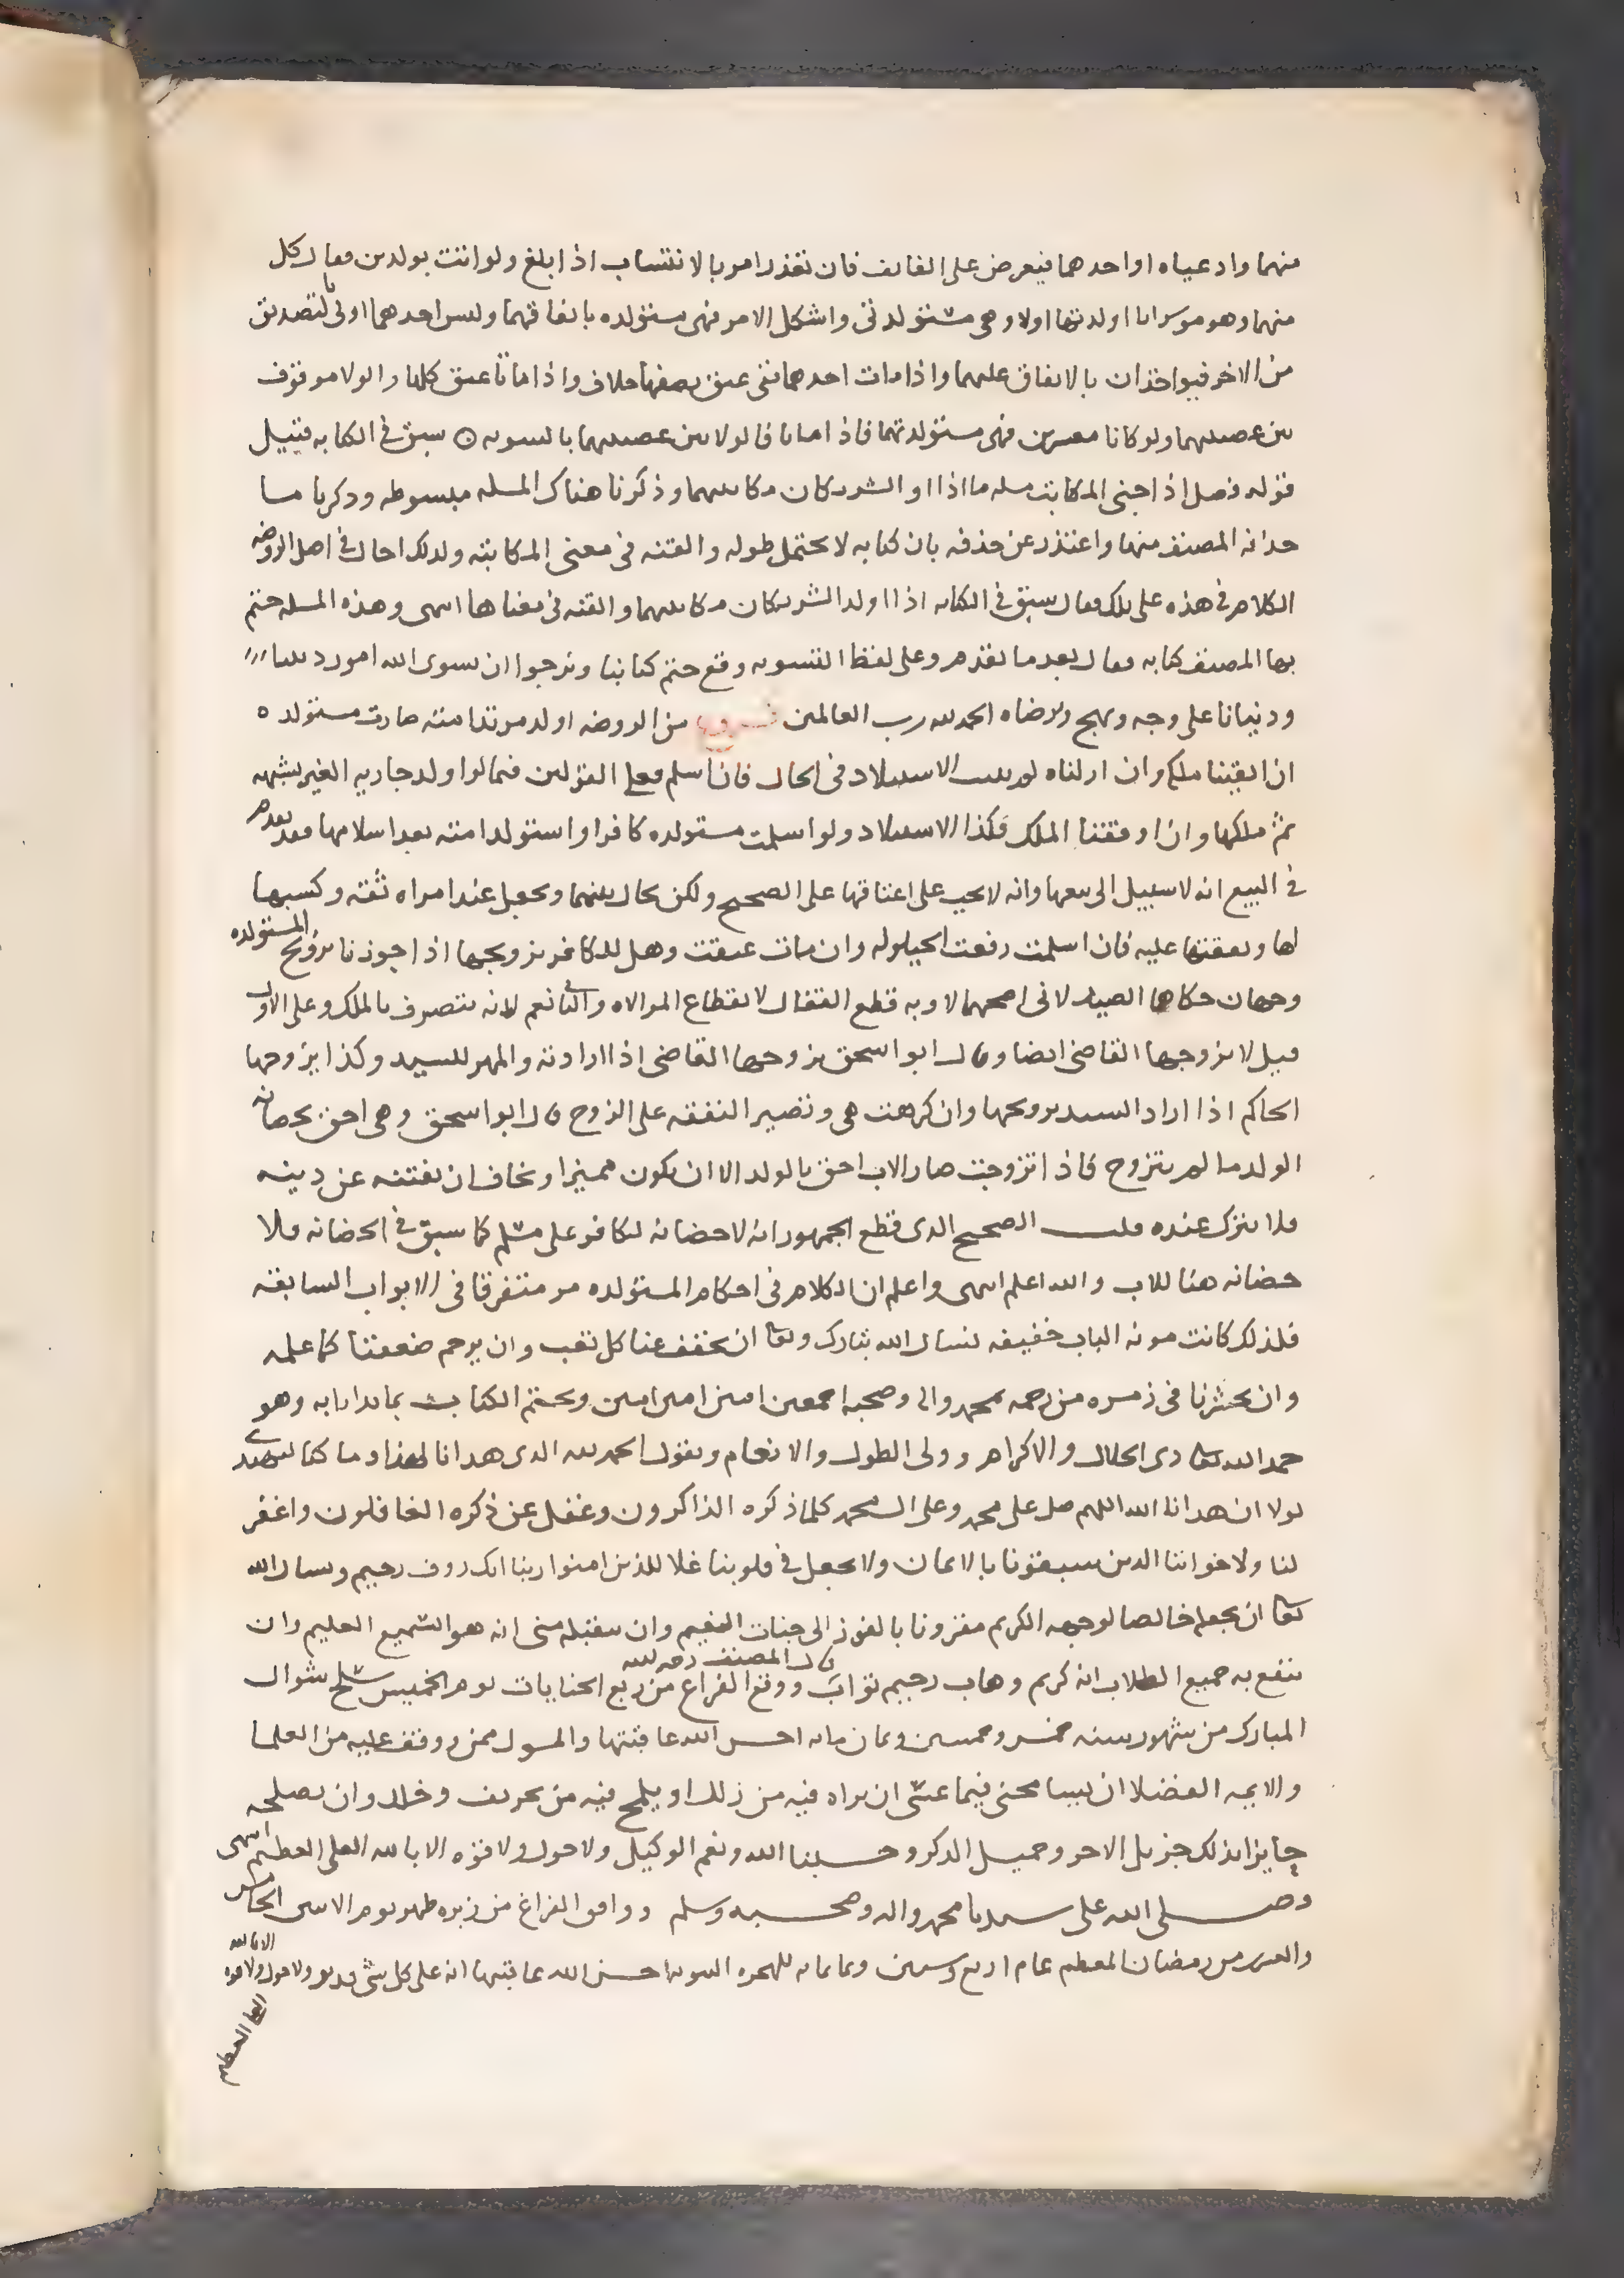 منهما وادعياه او احدهما فيعرض على القائف فان تعذر امر بالانتساب اذا بلغ ولو اتت بولدين وقال كل
منهما وهو موسر انا اولدتها اولا وهي مستولدتي واشكل الامر فهي مستولده باتفاقهما وليس احدهما اولى بالتصديق
من الاخر فيواخذان بالانفاق عليهما واذا مات احدهما ففي عتق نصفها خلاف واذا ماتا عتق كلها والولا موقوف
بين عصبيهما ولو كانا معسرين فهي مستولدتهما فاذا ماتا فالولا بين عصبيهما بالسويه ○ سبق في الكتابه قبيل
قوله فصل اذا جنى المكاتب مسله ما اذا او الشريكان مكاتبتهما وذكرنا هناك المسله مبسوطه وذكرنا ما
حذفه المصنف منها واعتذر عن حذفه بان كتابه لا يحتمل طوله والقنه في معنى المكاتبه ولذلك احال في اصل الروضه
الكلام في هذه على تلك فقال سبق في الكتابه اذا اولد الشريكان مكاتبتهما والقنه في معناها انتهى وهذه المسله ختم
بها المصنف كتابه فقال بعد ما تقدم وعلى لفظ التسويه وقع ختم كتابنا ونرجوا ان يسوى الله امور ديننا
ودنيانا على وجه ونهج يرضاه الحمد لله رب العالمين فروع من الروضه اولد مرتد امته صارت مستولده
ان ابقينا ملكه وان ازلناه لم يثبت الاستيلاد في الحال فان اسلم فعلى القولين فيما لو اولد جاريه الغير بشبهه
ثم ملكها وان اوقفنا الملك فكذا الاستيلاد ولو اسلمت مستولده كافر او استولد امته بعد اسلامها فقد تقدم
في البيع انه لا سبيل الى بيعها وانه لا يجب على اعتاقها على الصحيح ولكن يحال بينهما وتجعل عند امراه ثقه وكسبها
لها ونفقتها عليه فان اسلمت رفعت الحيلوله وان مات عتقت وهل للكافر تزويجها اذا جوزنا تزويج المستولده
وجهان حكاهما الصيدلاني اصحهما لا وبه قطع القفال لانقطاع الموالاه والثاني نعم لانه يتصرف بالملك وعلى الاول
قيل لا يزوجها القاضي ايضا وقال ابو اسحق يزوجها القاضي اذا ارادته والمهر للسيد وكذا يزوجها
الحاكم اذا اراد السيد تزويجها وان كرهت هي وتصير النفقه على الزوج قال ابو اسحق وهي احق بحضانه
الولد ما لم يتزوج فاذا تزوجت صار الاب احق بالولد الا ان يكون مميزا ويخاف ان يفتنه عن دينه
فلا يترك عنده قلت الصحيح الذي قطع الجمهور انه لا حضانه لكافر على مسلم كما سبق في الحضانه فلا
حضانه هنا للاب والله اعلم انتهى واعلم ان الكلام في احكام المستولده مر متفرقا في الابواب السابقه
فلذلك كانت مونه الباب خفيفه نسال الله تبارك وتعا ان يخفف عنا كل تعب وان يرحم ضعفنا كما علمه
وان يحشرنا في زمره من رحمه بمحمد واله وصحبه اجمعين امين امين امين ونختم الكتاب بما بدانا به وهو
حمد الله تعا ذي الجلال والاكرام وولي الطول والانعام ونقول الحمد لله الذي هدانا لهذا وما كنا لنهتدي
لولا ان هدانا الله اللهم صل على محمد وعلى ال محمد كلما ذكره الذاكرون وغفل عن ذكره الغافلون واغفر
لنا ولاخواننا الدين سبقونا بالايمان ولا تجعل في قلوبنا غلا للذين امنوا ربنا انك روف رحيم ونسال الله
تعا ان يجعله خالصا لوجهه الكريم مقرونا بالفوز الى جنات النعيم وان يتقبله مني انه هو السميع العليم وان
ينفع به جميع الطلاب انه كريم وهاب رحيم تواب قال المصنف رحمه الله ووقع الفراغ من ربع الجنايات يوم الخميس سلخ شوال
المبارك من شهور سنه خمس وخمسين وثمان مايه احسن الله عاقبتها والمسول ممن وقف عليه من العلما
والايمه الفضلا ان يسامحني فيما عسى ان يراه فيه من زلل او يلمح فيه من تحريف وخلل وان يصلحه
حايزا بذلك جزيل الاجر وجميل الذكر وحسبنا الله ونعم الوكيل ولا حول ولا قوه الا بالله العلي العظيم انتهى
وصلى الله على سيدنا محمد واله وصحبه وسلم ووافق الفراغ من زبره ظهر يوم الاثنين الخامس
والعشرين من رمضان المعظم عام اربع وستين وثمانمايه للهجره النبويه احسن الله عاقبتها انه على كل شي قدير ولا حول ولا قوه الا بالله
العلي العظيم